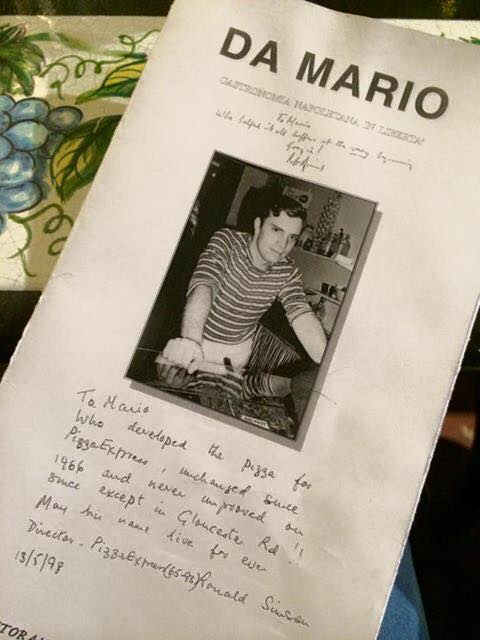 DA MARIO
GASTRONOMIA NAPOLETANA IN LIBERTA'
To Mario
Who helped it all happen at the very beginning
To Mario
Who developed the pizza for
PizzaExpress, unchanged since
1966 and never improved on
since except in Gloucester Rd !!
May his name live for ever
Director - PizzaExpress (65-93) Ronald Simson
13/5/98